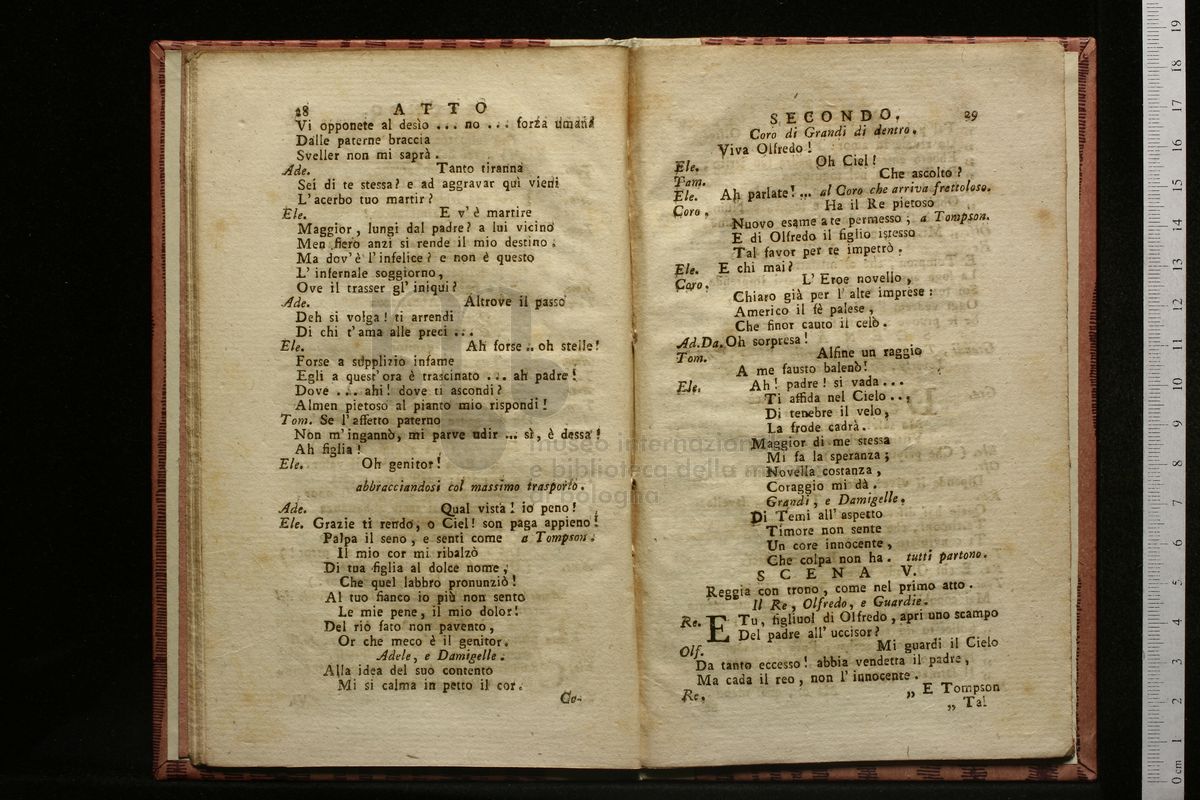 28 ATTO
Vi opponete al desìo ... no ... forza umana
Dalle paterne braccia
Sveller non mi saprà.
Ade. Tanto tiranna
Sei di te stessa? e ad aggravar quì vieni
L'acerbo tuo martir?
Ele. E v'è martire
Maggior, lungi dal padre? a lui vicino
Men fiero anzi si rende il mio destino.
Ma dov'è l'infelice? e non è questo
L'infernale soggiorno,
Ove il trasser gl'iniqui?
Ade. Altrove il passo
Deh si volga! ti arrendi
Di chi t'ama alle preci ...
Ele. Ah forse .. oh stelle!
Forse a supplizio infame
Egli a quest'ora è trascinato ... ah padre!
Dove ... ahi! dove ti ascondi?
Almen pietoso al pianto mio rispondi!
Tom. Se l'affetto paterno
Non m'ingannò, mi parve udir ... sì, è dessa!
Ah figlia!
Ele. Oh genitor!
abbracciandosi col massimo trasporto.
Ade. Qual vista! io peno!
Ele. Grazie ti rendo, o Ciel! son paga appieno!
Palpa il seno, e senti come a Tompson.
Il mio cor mi ribalzò
Di tua figlia al dolce nome,
Che quel labbro pronunziò!
Al tuo fianco io più non sento
Le mie pene, il mio dolor!
Del rio fato non pavento,
Or che meco è il genitor.
Adele, e Damigelle.
Alla idea del suo contento
Mi si calma in petto il cor.
Co-
SECONDO. 29
Coro di Grandi di dentro.
Viva Olfredo!
Ele. Oh Ciel!
Tam. Che ascolto?
Ele. Ah parlate! ... al Coro che arriva frettoloso.
Coro. Ha il Re pietoso
Nuovo esame a te permesso; a Tompson.
E di Olfredo il figlio istesso
Tal favor per te impetrò.
Ele. E chi mai?
Coro. L'Eroe novello,
Chiaro già per l'alte imprese:
Americo il fè palese,
Che finor cauto il celò.
Ad.Da. Oh sorpresa!
Tom. Alfine un raggio
A me fausto balenò!
Ele. Ah! padre! si vada ...
Ti affida nel Cielo ...
Di tenebre il velo,
La frode cadrà.
Maggior di me stessa
Mi fa la speranza;
Novella costanza,
Coraggio mi dà.
Grandi, e Damigelle.
Di Temi all'aspetto
Timore non sente
Un core innocente,
Che colpa non ha. tutti partono.
SCENA V.
Reggia con trono, come nel primo atto.
Il Re, Olfredo, e Guardie.
Re. E Tu, figliuol di Olfredo, apri uno scampo
Del padre all'uccisor?
Olf. Mi guardi il Cielo
Da tanto eccesso! abbia vendetta il padre,
Ma cada il reo, non l'innocente.
Re. „ E Tompson
„ Tal
museo internazionale
e biblioteca della musica
di bologna
0 cm 1 2 3 4 5 6 7 8 9 10 11 12 13 14 15 16 17 18 19